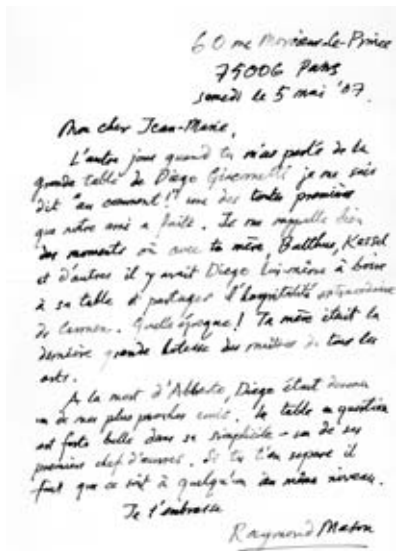 60 rue Monsieur-le-Prince
75006 Paris
samedi le 5 mai '07.
Mon cher Jean-Marie,
L'autre jour quand tu m'as parlé de la
grande table de Diego Giacometti je me suis
dit "au comment!" une des toutes premières
que notre ami a faite. Je me rappelle bien
des moments où avec ta mère, Balthus, Kessel
et d'autres il y avait Diego lui-même à boire
à sa table et partager l'hospitalité extraordinaire
de Carmen. Quelle époque! Ta mère était la
dernière grande hôtesse des maîtres de tous les
arts.
A la mort d'Alberto, Diego était devenu
un de mes plus proches amis. La table en question
est forte belle dans sa simplicité - un de ses
premiers chef d'œuvres. Si tu t'en sépare il
faut que ce soit à quelqu'un du même niveau.
Je t'embrasse
Raymond Mason